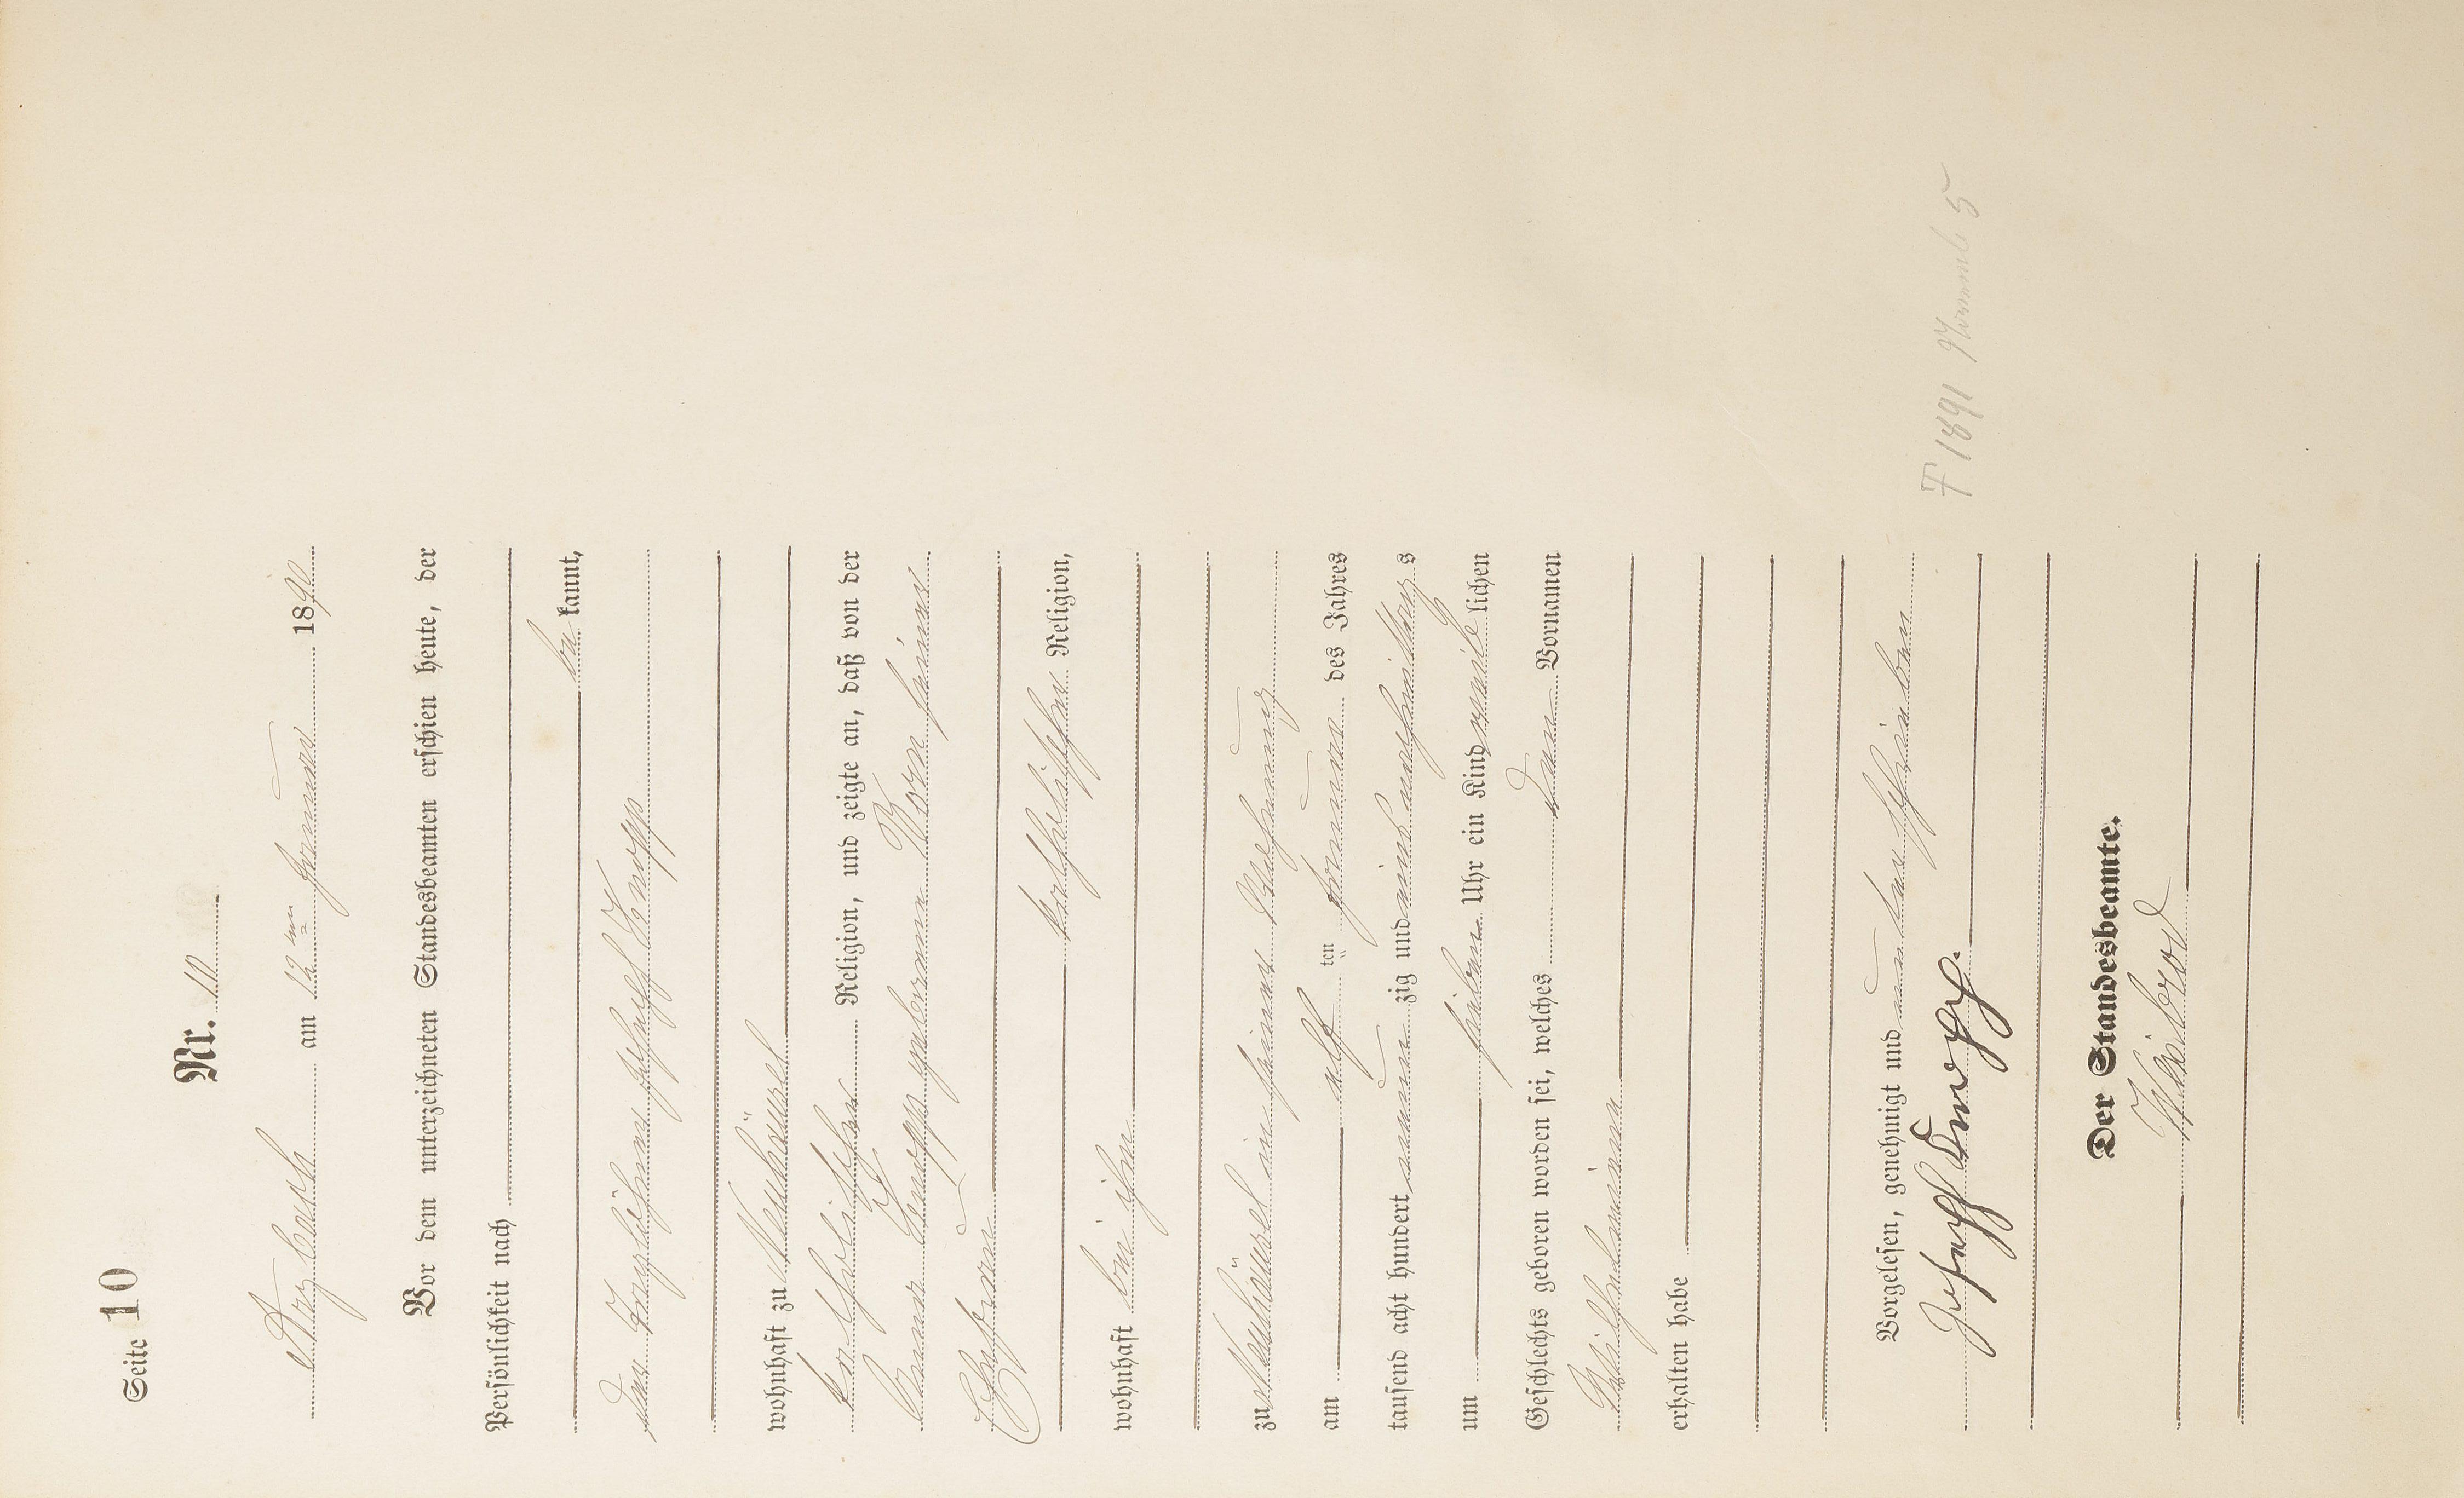 Seite 10
Nr. 10
Arzbach am 12ten Januar 1890
Vor dem unterzeichneten Standesbeamten erschien heute, der
Persönlichkeit nach
be kannt,
der Taglöhner Joseph Knopp
wohnhaft zu Neuhäusel
katholischer Religion, und zeigte an, daß von der
Anna Knopp geborenen Korn seiner
Ehefrau
katholischer Religion,
wohnhaft bei ihm
zu Neuhäusel in seiner Wohnung
am elf ten Januar des Jahres
tausend acht hundert neun zig und nachmittags
um sieben Uhr ein Kind weib lichen
Geschlechts geboren worden sei, welches den Vornamen
Wilhelmina
erhalten habe
Vorgelesen, genehmigt und unterschrieben
Joseph Knopp.
† 1891 5
Der Standesbeamte.